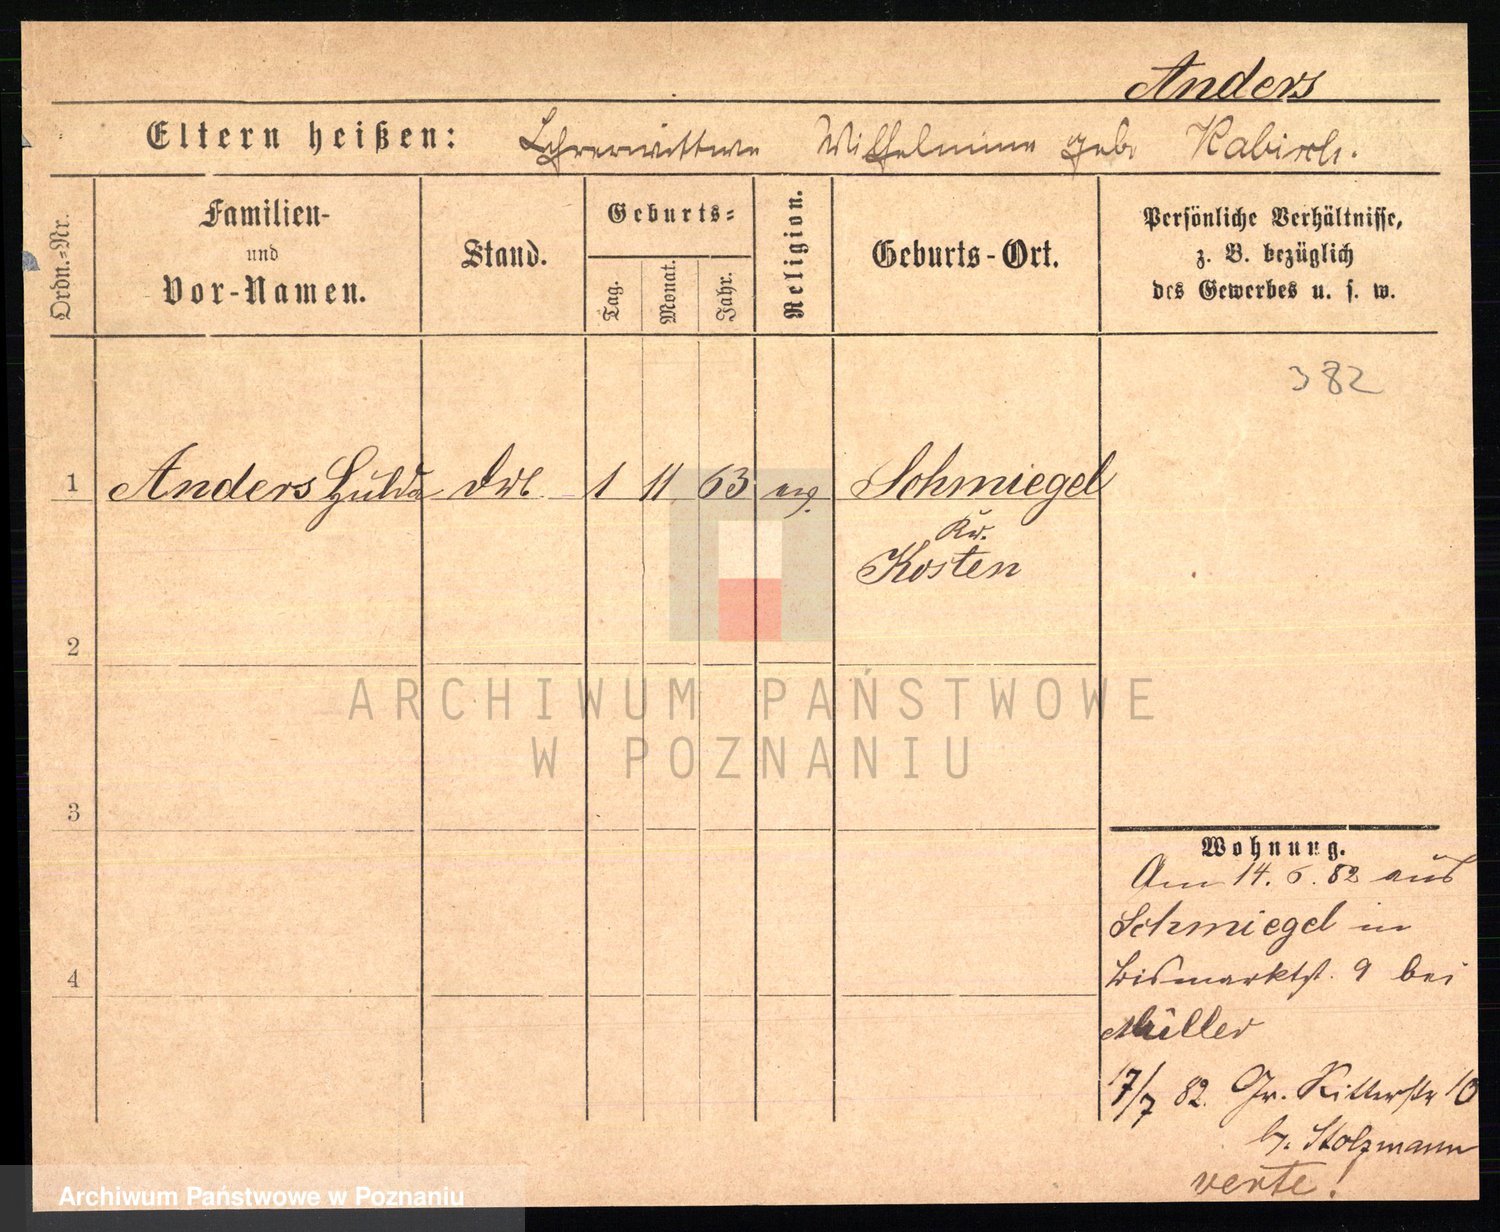 Anders
Eltern heißen: Lehrerwittwe Wilhelmine geb. Kabisch.
Ordn.-Nr.
Familien-
und
Vor-Namen.
Stand.
Geburts-
Tag.
Monat.
Jahr.
Religion.
Geburts-Ort.
Persönliche Verhältnisse,
z. B. bezüglich
des Gewerbes u. s. w.
382
1 Anders Hulda 1 11 63 ev. Schmiegel
Kr.
Kosten
2
3
4
ARCHIWUM PAŃSTWOWE
W POZNANIU
Wohnung.
Am 14. 6. 82 aus
Schmiegel in
Bismarckst. 9 bei
Müller
17/7 82. Gr. Ritterstr 10
b. Stolzmann
verte!
Archiwum Państwowe w Poznaniu